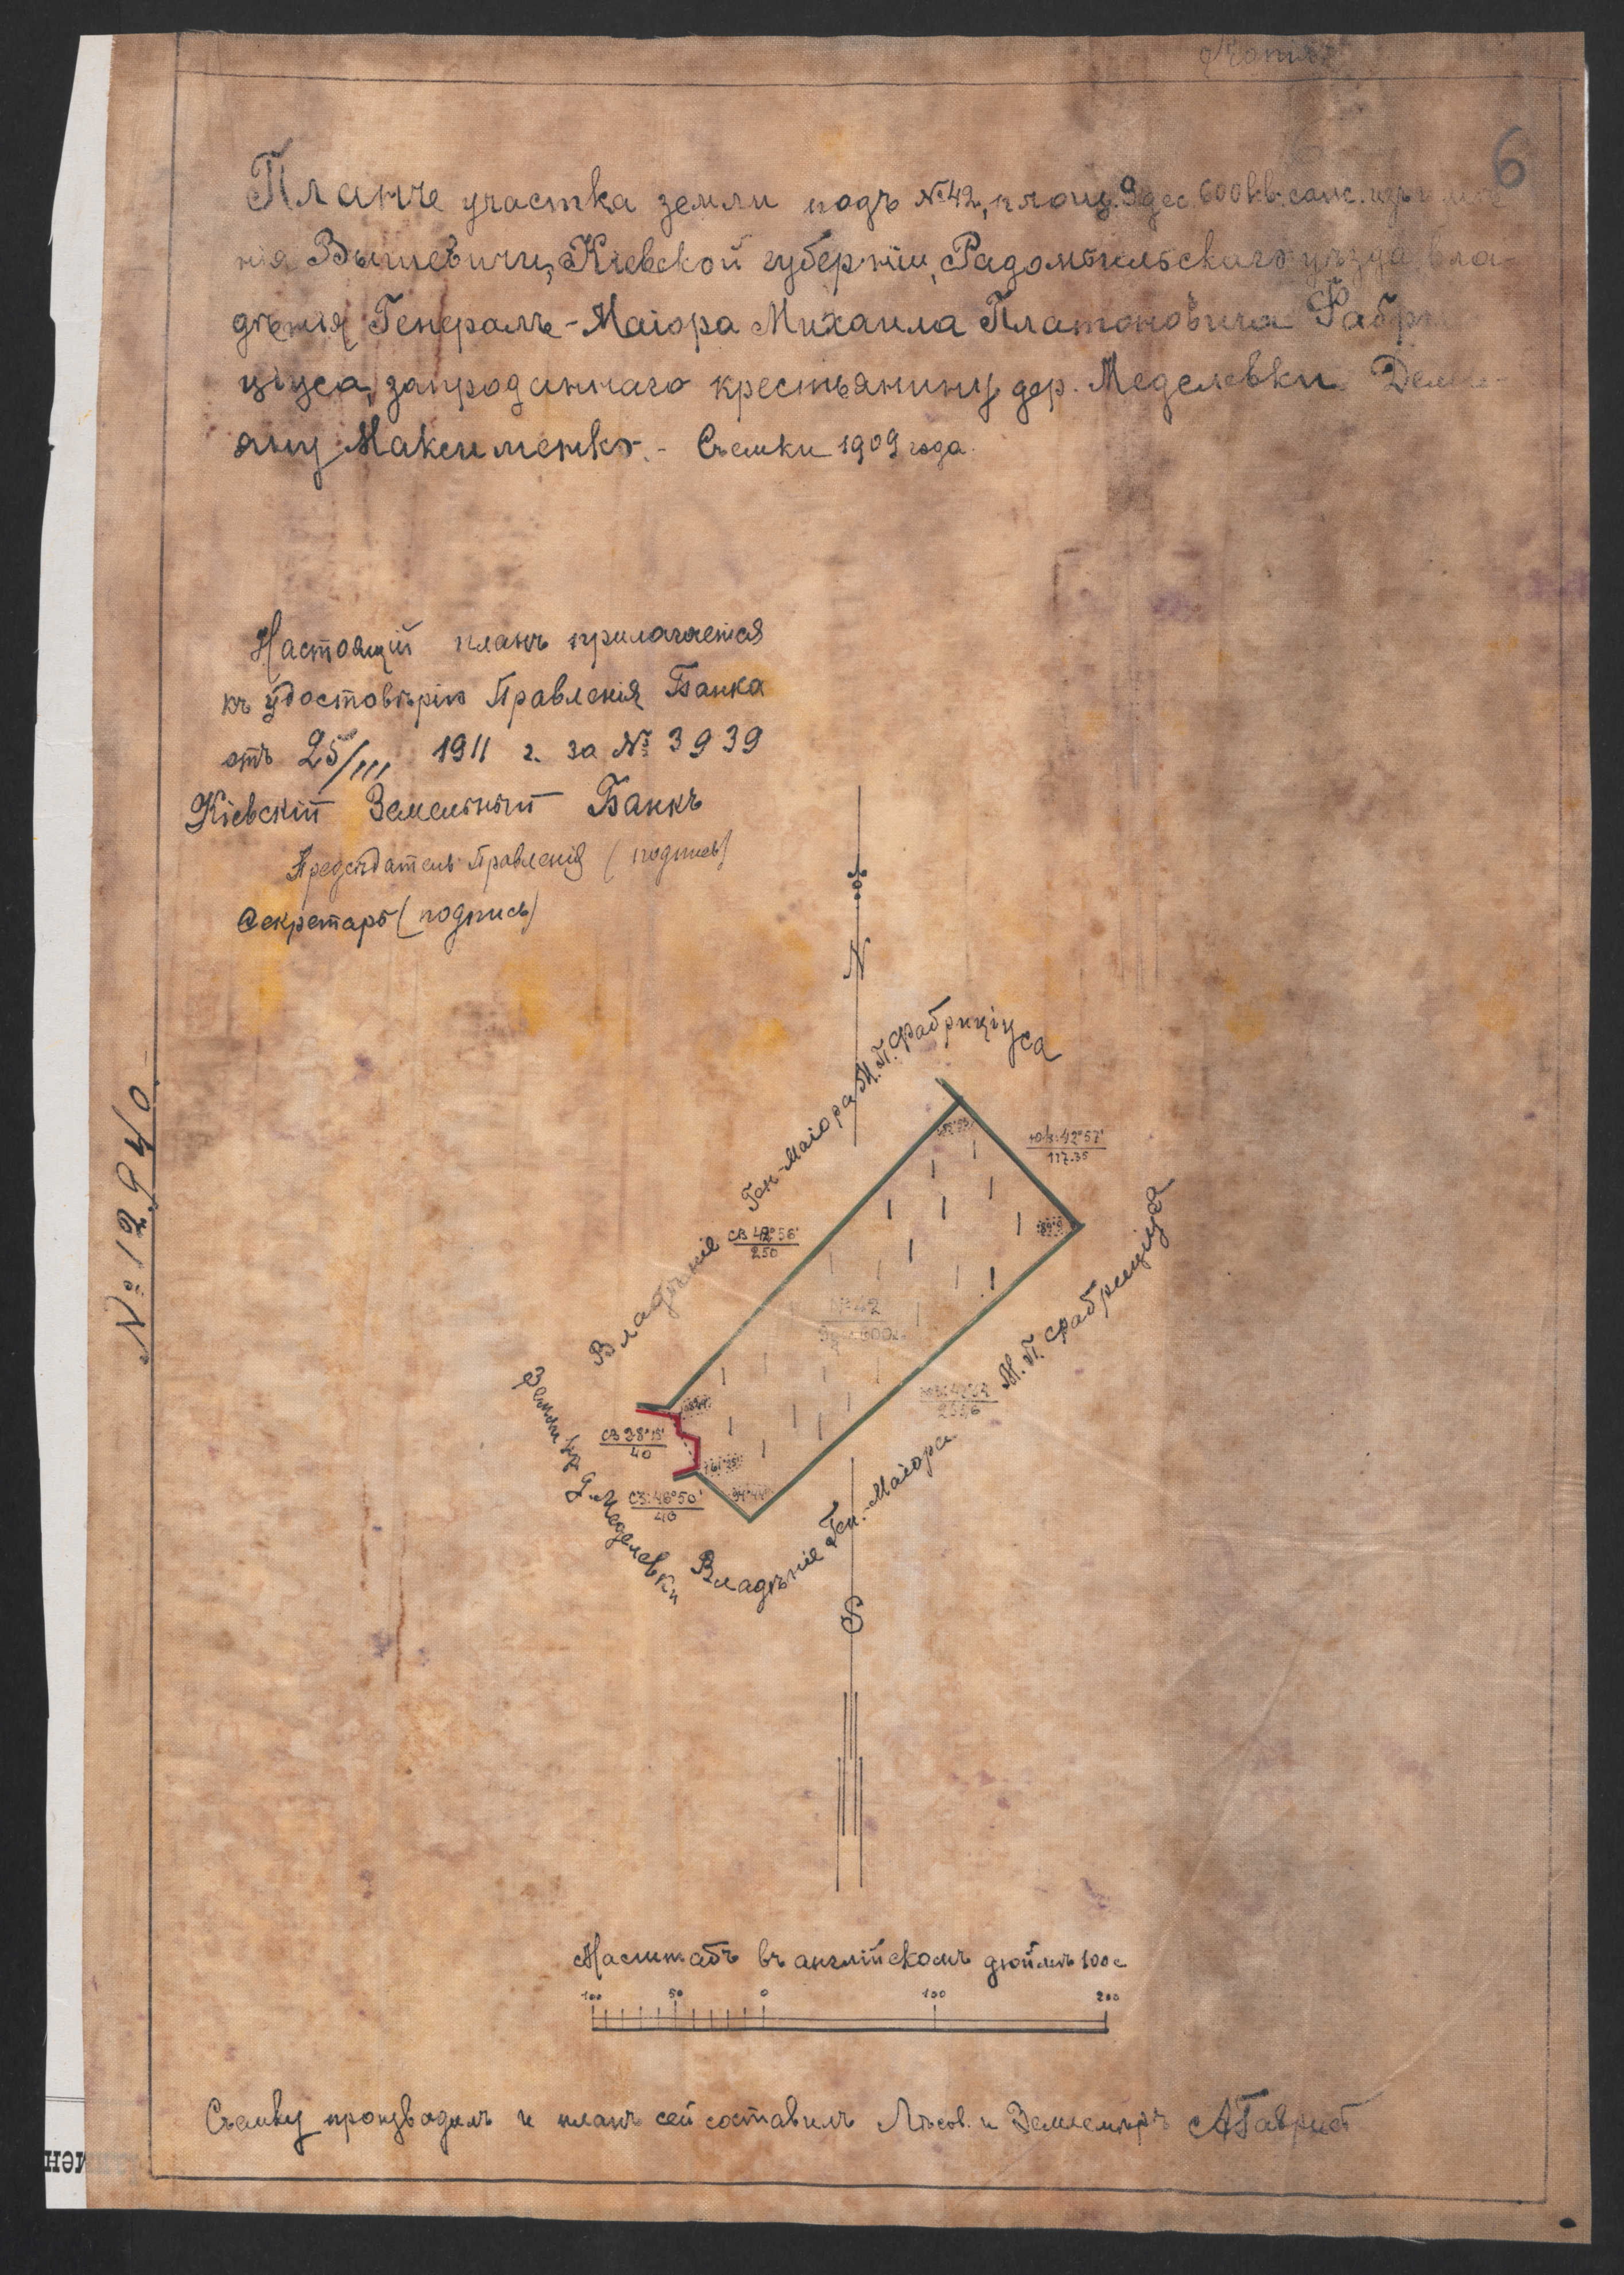 Копія
6
Планъ участка земли подъ №42, площ. 9 дес. 600 кв. саж. изъ имѣ-
нія Вышевичи, Кіевской губерніи, Радомысльскаго уѣзда, вла-
дѣнія Генералъ-Маіора Михаила Платоновича Фабри
ціуса, запроданнаго крестьянину дер. Меделевки Деми-
ану Максименко. - Съемки 1909 года.
Настоящій планъ прилагается
къ удостовѣрію Правленія Банка
отъ 25/III 1911 г. за № 3939
Кіевскій Земельный Банкъ
Предсѣдатель Правленія (подпись)
Секретарь (подпись)
№ 12940
N
Владѣніе Ген-Маіора М.П. Фабриціуса
ЮВ:42°57'
117.35
СВ 42°56'
250
№42
Земли кр. д. Меделевки
СВ 38°15'
40
СЗ:46°50'
40
Владѣніе Ген.-Маіора М. П. Фабриціуса
S
Масштабъ въ англійскомъ дюймѣ 100 с
100 50 0 100 200
Съемку производилъ и планъ сей составилъ Лѣсов. и Землемѣръ